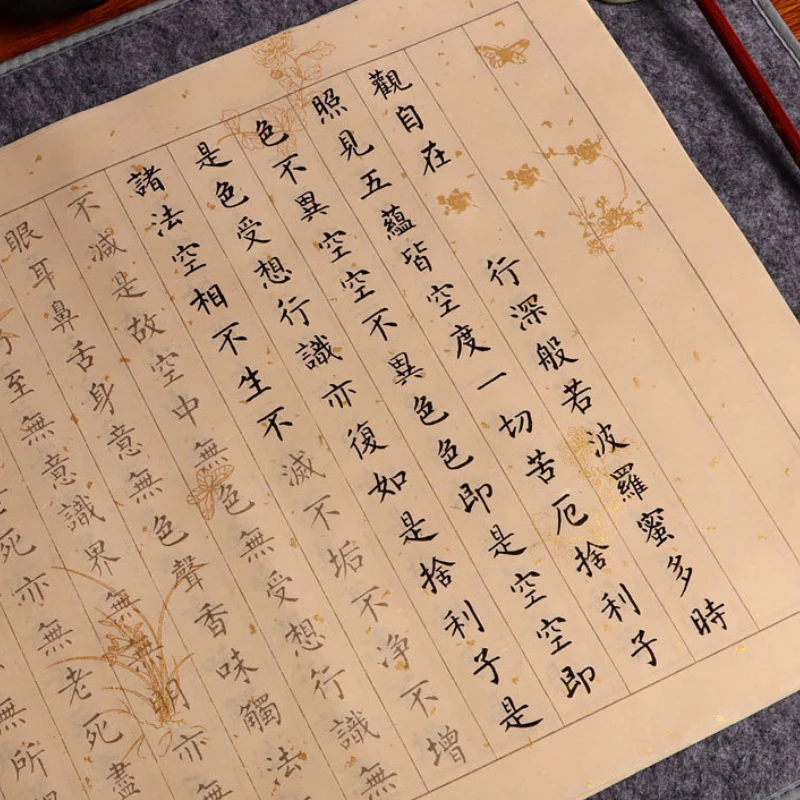 觀自在行深般若波羅蜜多時
照見五蘊皆空度一切苦厄捨利子
色不異空空不異色色即是空空即
是色受想行識亦復如是捨利子是
諸法空相不生不滅不垢不净不增
不減是故空中無色無受想行識無
眼耳鼻舌身意無色聲香味觸法
至無意識界無無明亦無
死亦無老死盡
無所